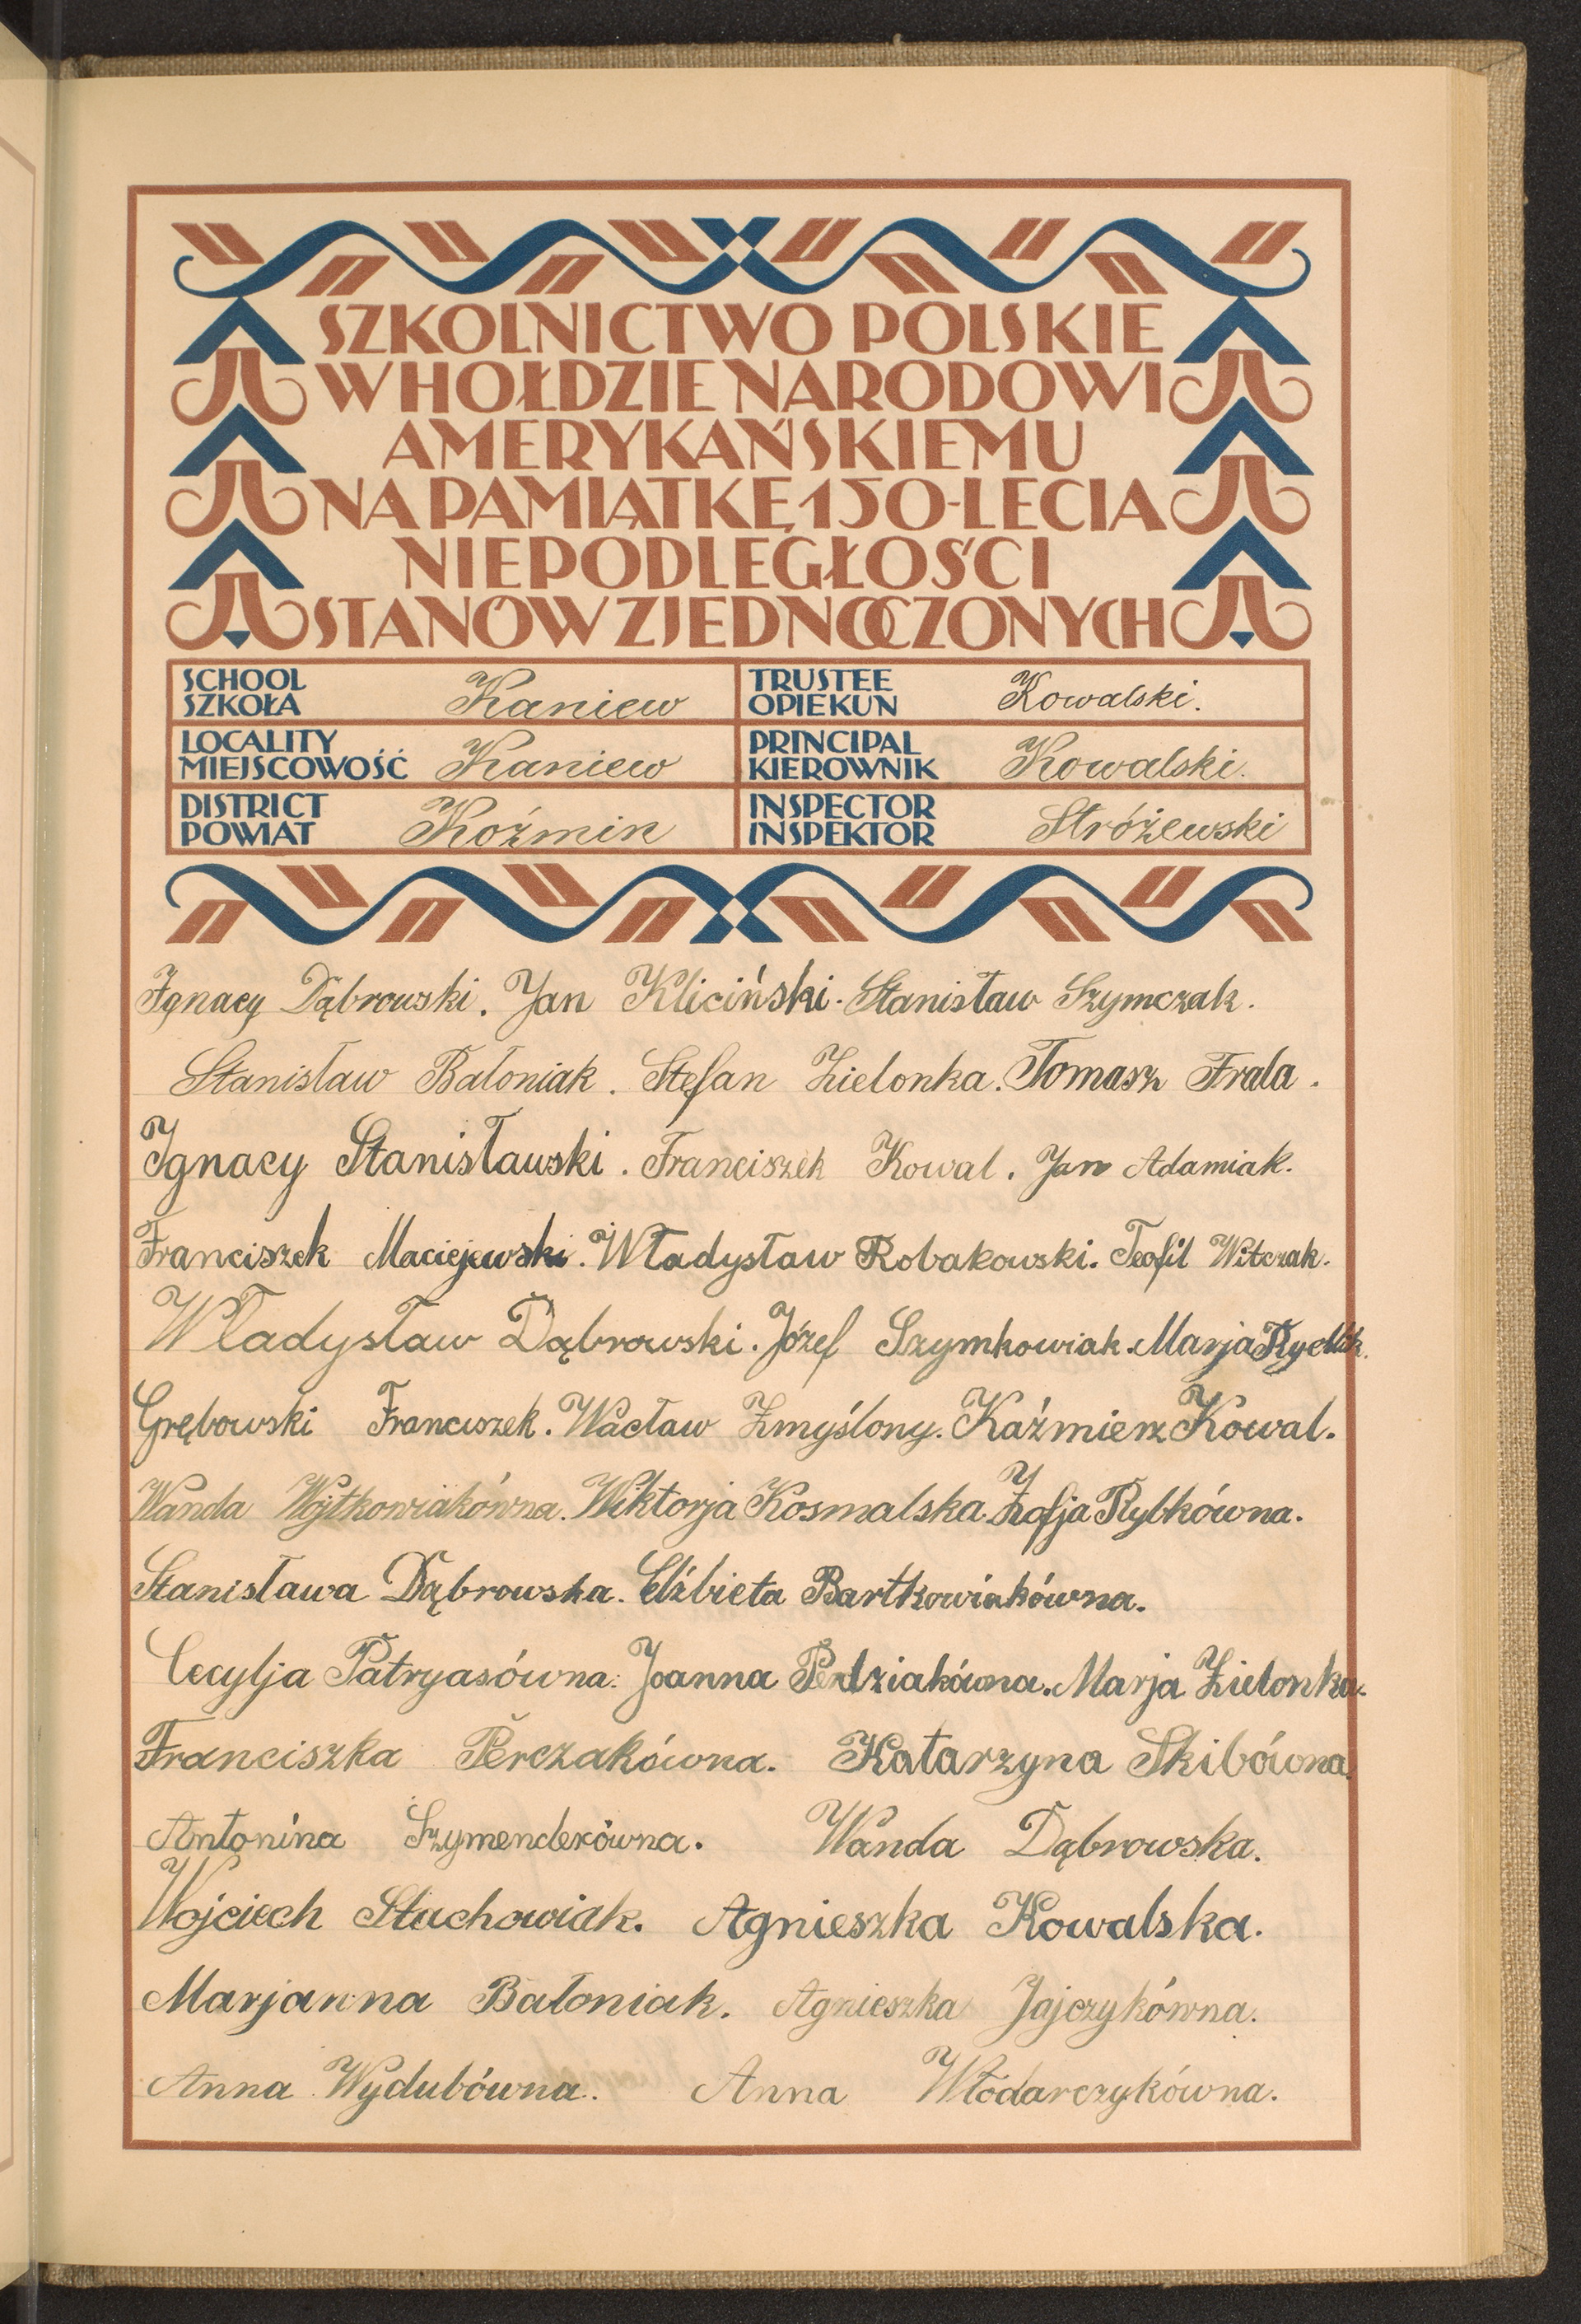 SZKOLNICTWO POLSKIE
W HOŁDZIE NARODOWI
AMERYKAŃSKIEMU
NA PAMIĄTKĘ 150-LECIA
NIEPODLEGŁOŚCI
STANÓW ZJEDNOCZONYCH
SCHOOL
SZKOŁA Kaniew
TRUSTEE
OPIEKUN Kowalski.
LOCALITY
MIEJSCOWOŚĆ Kaniew
PRINCIPAL
KIEROWNIK Kowalski.
DISTRICT
POWIAT Koźmin
INSPECTOR
INSPEKTOR Stróżewski
Ignacy Dąbrowski. Jan Kliciński. Stanisław Szymczak.
Stanisław Batoniak. Stefan Zielonka. Tomasz Frala.
Ignacy Stanisławski. Franciszek Kowal. Jan Adamiak.
Franciszek Maciejewski. Władysław Robakowski. Teofil Witczak.
Władysław Dąbrowski. Józef Szymkowiak. Marja
Grębowski Franciszek. Wacław Zmyślony. Kaźmierz Kowal.
Wanda Wojtkowiakówna. Wiktorja Kosmalska. Zofja Rybkówna.
Stanisława Dąbrowska. Elżbieta Bartkowiakówna.
Cecylja Patryasówna. Joanna Perdziakówna. Marja Zielonka.
Franciszka Perczakówna. Katarzyna Skibówna.
Antonina Szymenderówna. Wanda Dąbrowska.
Wojciech Stachowiak. Agnieszka Kowalska.
Marjanna Batoniak. Agnieszka Jajczykówna.
Anna Wydubówna. Anna Włodarczykówna.